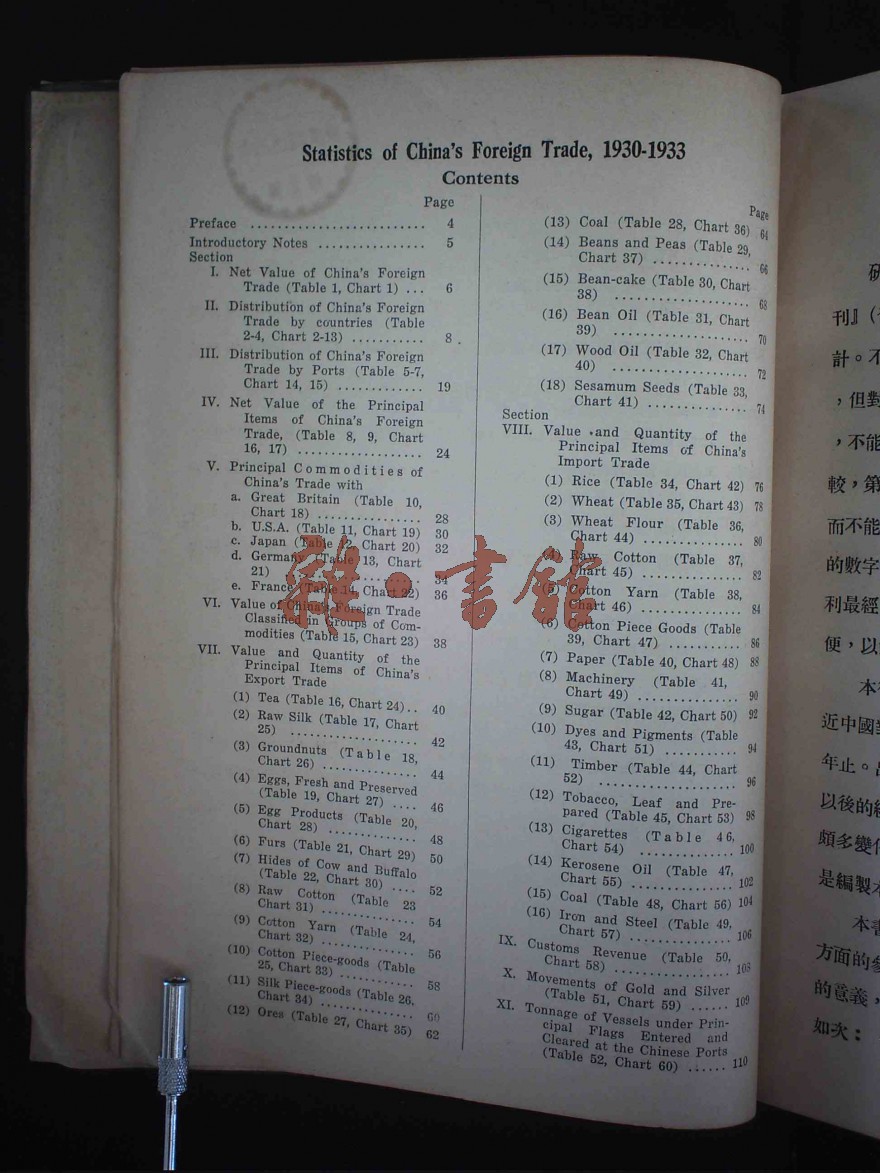 Statistics of China's Foreign Trade, 1930-1933
Contents
Page
Preface .......................... 4
Introductory Notes ................ 5
Section
I. Net Value of China's Foreign
Trade (Table 1, Chart 1) ... 6
II. Distribution of China's Foreign
Trade by countries (Table
2-4, Chart 2-13) ........... 8
III. Distribution of China's Foreign
Trade by Ports (Table 5-7,
Chart 14, 15) ............. 19
IV. Net Value of the Principal
Items of China's Foreign
Trade, (Table 8, 9, Chart
16, 17) ................... 24
V. Principal Commodities of
China's Trade with
a. Great Britain (Table 10,
Chart 18) ............... 28
b. U.S.A. (Table 11, Chart 19) 30
c. Japan (Table 12, Chart 20) 32
d. Germany (Table 13, Chart
21) ..................... 34
e. France (Table 14, Chart 22) 36
VI. Value of China's Foreign Trade
Classified in Groups of Com-
modities (Table 15, Chart 23) 38
VII. Value and Quantity of the
Principal Items of China's
Export Trade
(1) Tea (Table 16, Chart 24).. 40
(2) Raw Silk (Table 17, Chart
25) ................... 42
(3) Groundnuts (Table 18,
Chart 26) .............. 44
(4) Eggs, Fresh and Preserved
(Table 19, Chart 27) .... 46
(5) Egg Products (Table 20,
Chart 28) ............. 48
(6) Furs (Table 21, Chart 29) 50
(7) Hides of Cow and Buffalo
(Table 22, Chart 30) .... 52
(8) Raw Cotton (Table 23
Chart 31) .............. 54
(9) Cotton Yarn (Table 24,
Chart 32) .............. 56
(10) Cotton Piece-goods (Table
25, Chart 33) ........... 58
(11) Silk Piece-goods (Table 26,
Chart 34) .............. 60
(12) Ores (Table 27, Chart 35) 62
Page
(13) Coal (Table 28, Chart 36) 64
(14) Beans and Peas (Table 29,
Chart 37) .............. 66
(15) Bean-cake (Table 30, Chart
38) .................... 68
(16) Bean Oil (Table 31, Chart
39) .................... 70
(17) Wood Oil (Table 32, Chart
40) .................... 72
(18) Sesamum Seeds (Table 33,
Chart 41) ............... 74
Section
VIII. Value and Quantity of the
Principal Items of China's
Import Trade
(1) Rice (Table 34, Chart 42) 76
(2) Wheat (Table 35, Chart 43) 78
(3) Wheat Flour (Table 36,
Chart 44) ............... 80
(4) Raw Cotton (Table 37,
Chart 45) .............. 82
(5) Cotton Yarn (Table 38,
Chart 46) .............. 84
(6) Cotton Piece Goods (Table
39, Chart 47) ........... 86
(7) Paper (Table 40, Chart 48) 88
(8) Machinery (Table 41,
Chart 49) ............... 90
(9) Sugar (Table 42, Chart 50) 92
(10) Dyes and Pigments (Table
43, Chart 51) ........... 94
(11) Timber (Table 44, Chart
52) .................... 96
(12) Tobacco, Leaf and Pre-
pared (Table 45, Chart 53) 98
(13) Cigarettes (Table 46,
Chart 54) .............. 100
(14) Kerosene Oil (Table 47,
Chart 55) ............... 102
(15) Coal (Table 48, Chart 56) 104
(16) Iron and Steel (Table 49,
Chart 57) ............... 106
IX. Customs Revenue (Table 50,
Chart 58) ................. 108
X. Movements of Gold and Silver
(Table 51, Chart 59) ...... 109
XI. Tonnage of Vessels under Prin-
cipal Flags Entered and
Cleared at the Chinese Ports
(Table 52, Chart 60) ...... 110
雜·書館
刊』(
計。不
,但對
,不能
較,第
而不能
的數字
利最經
便,以
本
近中國
年止。
以後的
頗多變
是編製本
本書
方面的參
的意義,
如次: